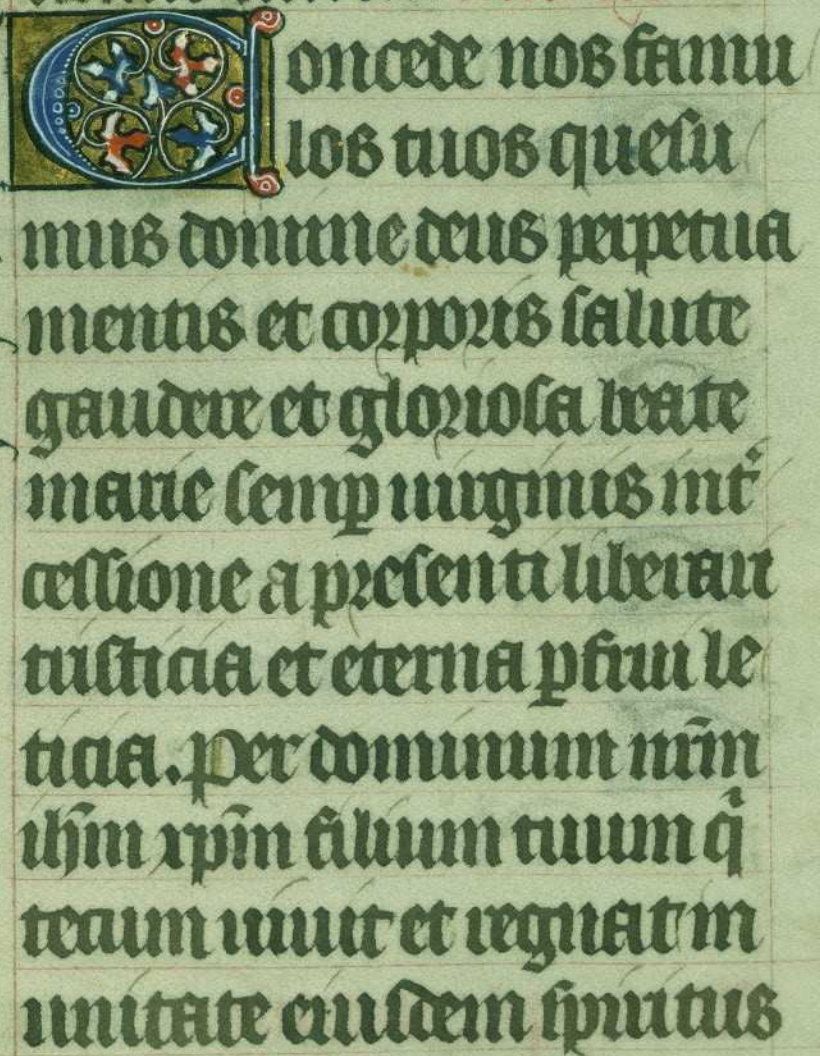 Concede nos famu
los tuos quesu
mus domine deus perpetua
mentis et corporis salute
gaudere et gloriosa beate
marie semꝑ uirginis int͛
cessione a presenti liberari
tristicia et eterna ꝑfrui le
ticia. Per dominum nr̄m
ih̄m xp̄m filium tuum qͥ
tecum uiuit et regnat in
unitate eiusdem spiritus